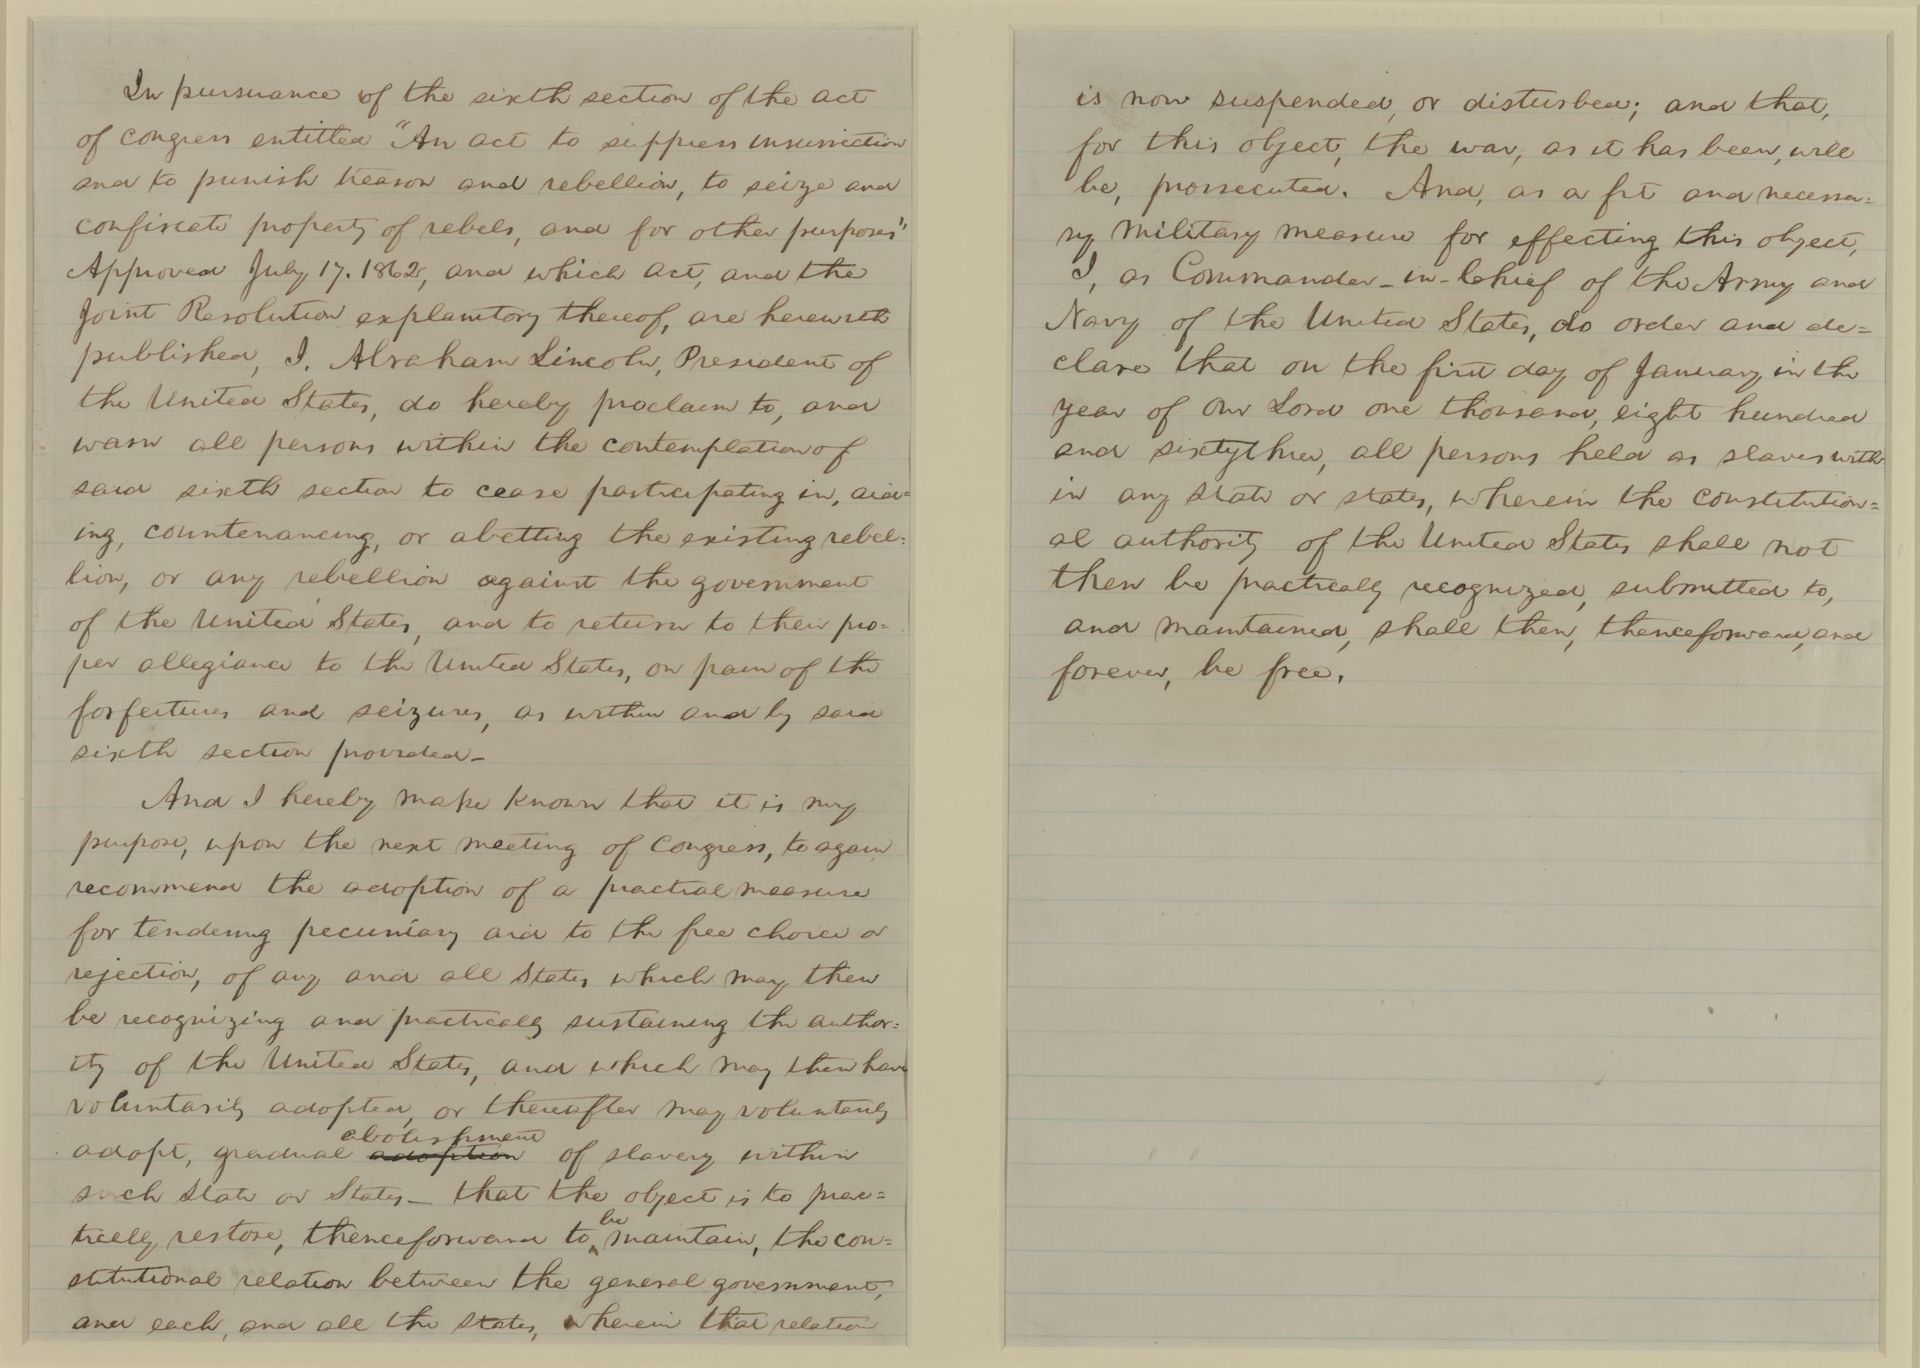 In pursuance of the sixth section of the act
of congress entitled "An act to suppress insurrection
and to punish treason and rebellion, to seize and
confiscate property of rebels, and for other purposes"
Approved July 17. 1862, and which act, and the
Joint Resolution explanatory thereof, are herewith
published, I, Abraham Lincoln, President of
the United States, do hereby proclaim to, and
warn all persons within the contemplation of
said sixth section to cease participating in, aid=
ing, countenancing, or abetting the existing rebel=
lion, or any rebellion against the government
of the United States, and to return to their pro=
per allegiance to the United States, on pain of the
forfeitures and seizures, as within and by said
sixth section provided—
And I hereby make known that it is my
purpose, upon the next meeting of Congress, to again
recommend the adoption of a practical measure
for tendering pecuniary aid to the free choice or
rejection, of any and all States which may then
be recognizing and practically sustaining the author=
ity of the United States, and which may then have
voluntarily adopted, or thereafter may voluntarily
adopt, gradual adoption abolishment of slavery within
such State or States— that the object is to prac=
tically restore, thenceforward to be maintain, the con=
stitutional relation between the general government,
and each, and all the states, wherein that relation
is now suspended, or disturbed; and that,
for this object, the war, as it has been, will
be, prossecuted. And, as a fit and necessa=
ry military measure for effecting this object,
I, as Commander-in-Chief of the Army and
Navy of the United States, do order and de=
clare that on the first day of January in the
year of our Lord one thousand, eight hundred
and sixtythree, all persons held as slaves with
in any state or states, wherein the constitution=
al authority of the United States shall not
then be practically recognized, submitted to,
and maintained, shall then, thenceforward, and
forever, be free.